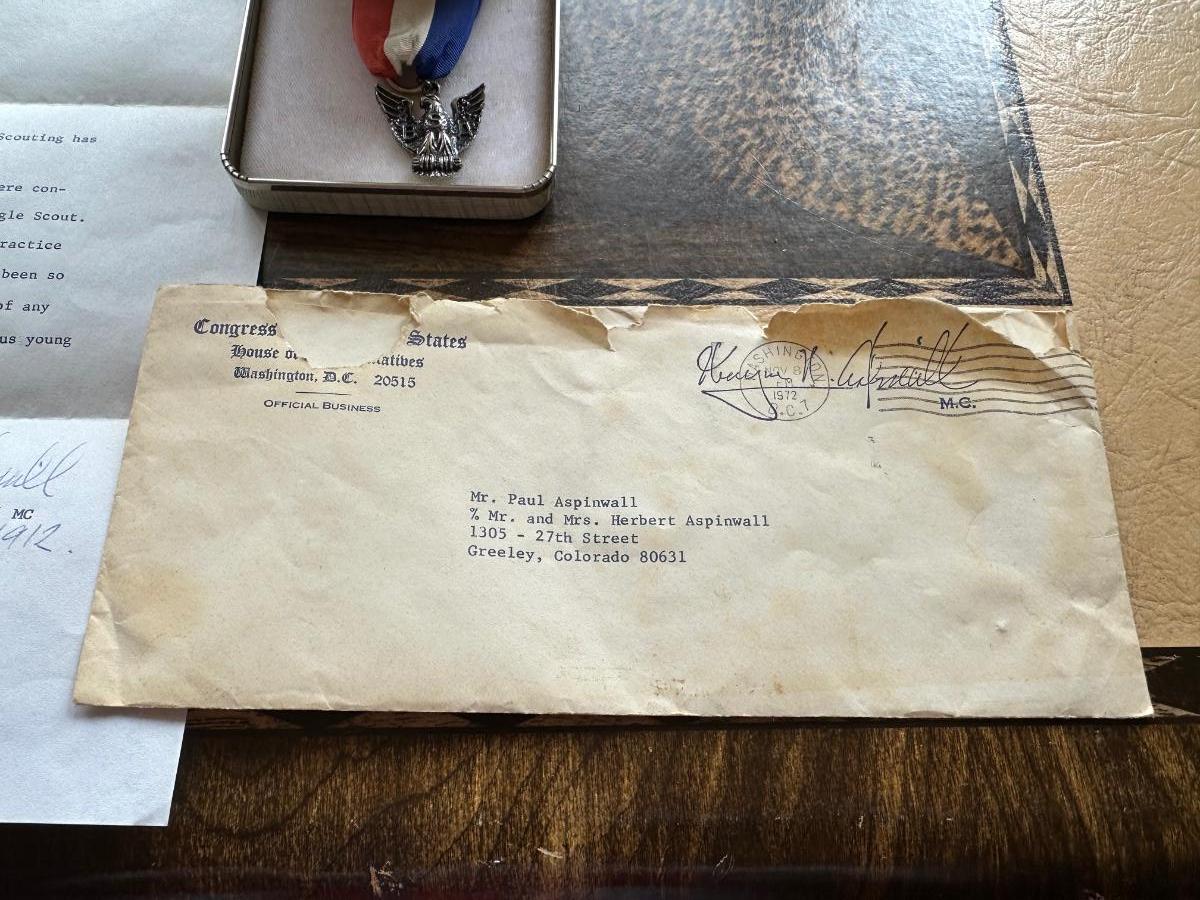 Scouting has
ere con-
gle Scout.
ractice
been so
of any
us young
MC
1912.
Congress States
House o atives
Washington, D.C. 20515
OFFICIAL BUSINESS
SHINGTON
NOV 8
PM
1972
D.C.
M.C.
Mr. Paul Aspinwall
% Mr. and Mrs. Herbert Aspinwall
1305 - 27th Street
Greeley, Colorado 80631